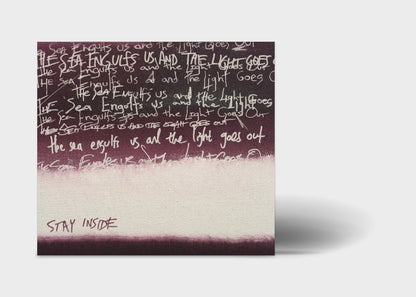 the Sea Engulfs us and the Light Goes Out
THE SEA ENGULFS US AND THE LIGHT GOES O
the Sea Engulfs us and the Light Goes Out
the Sea Engulfs us and the Light Goes
the Sea Engulfs us and the Light
THE Sea Engulfs us and the Light Goes
the Sea Engulfs us and the Light Goes Out
THE SEA ENGULFS US AND THE LIGHT GOES OUT
the sea engulfs us and the light goes out
the Sea
STAY INSIDE